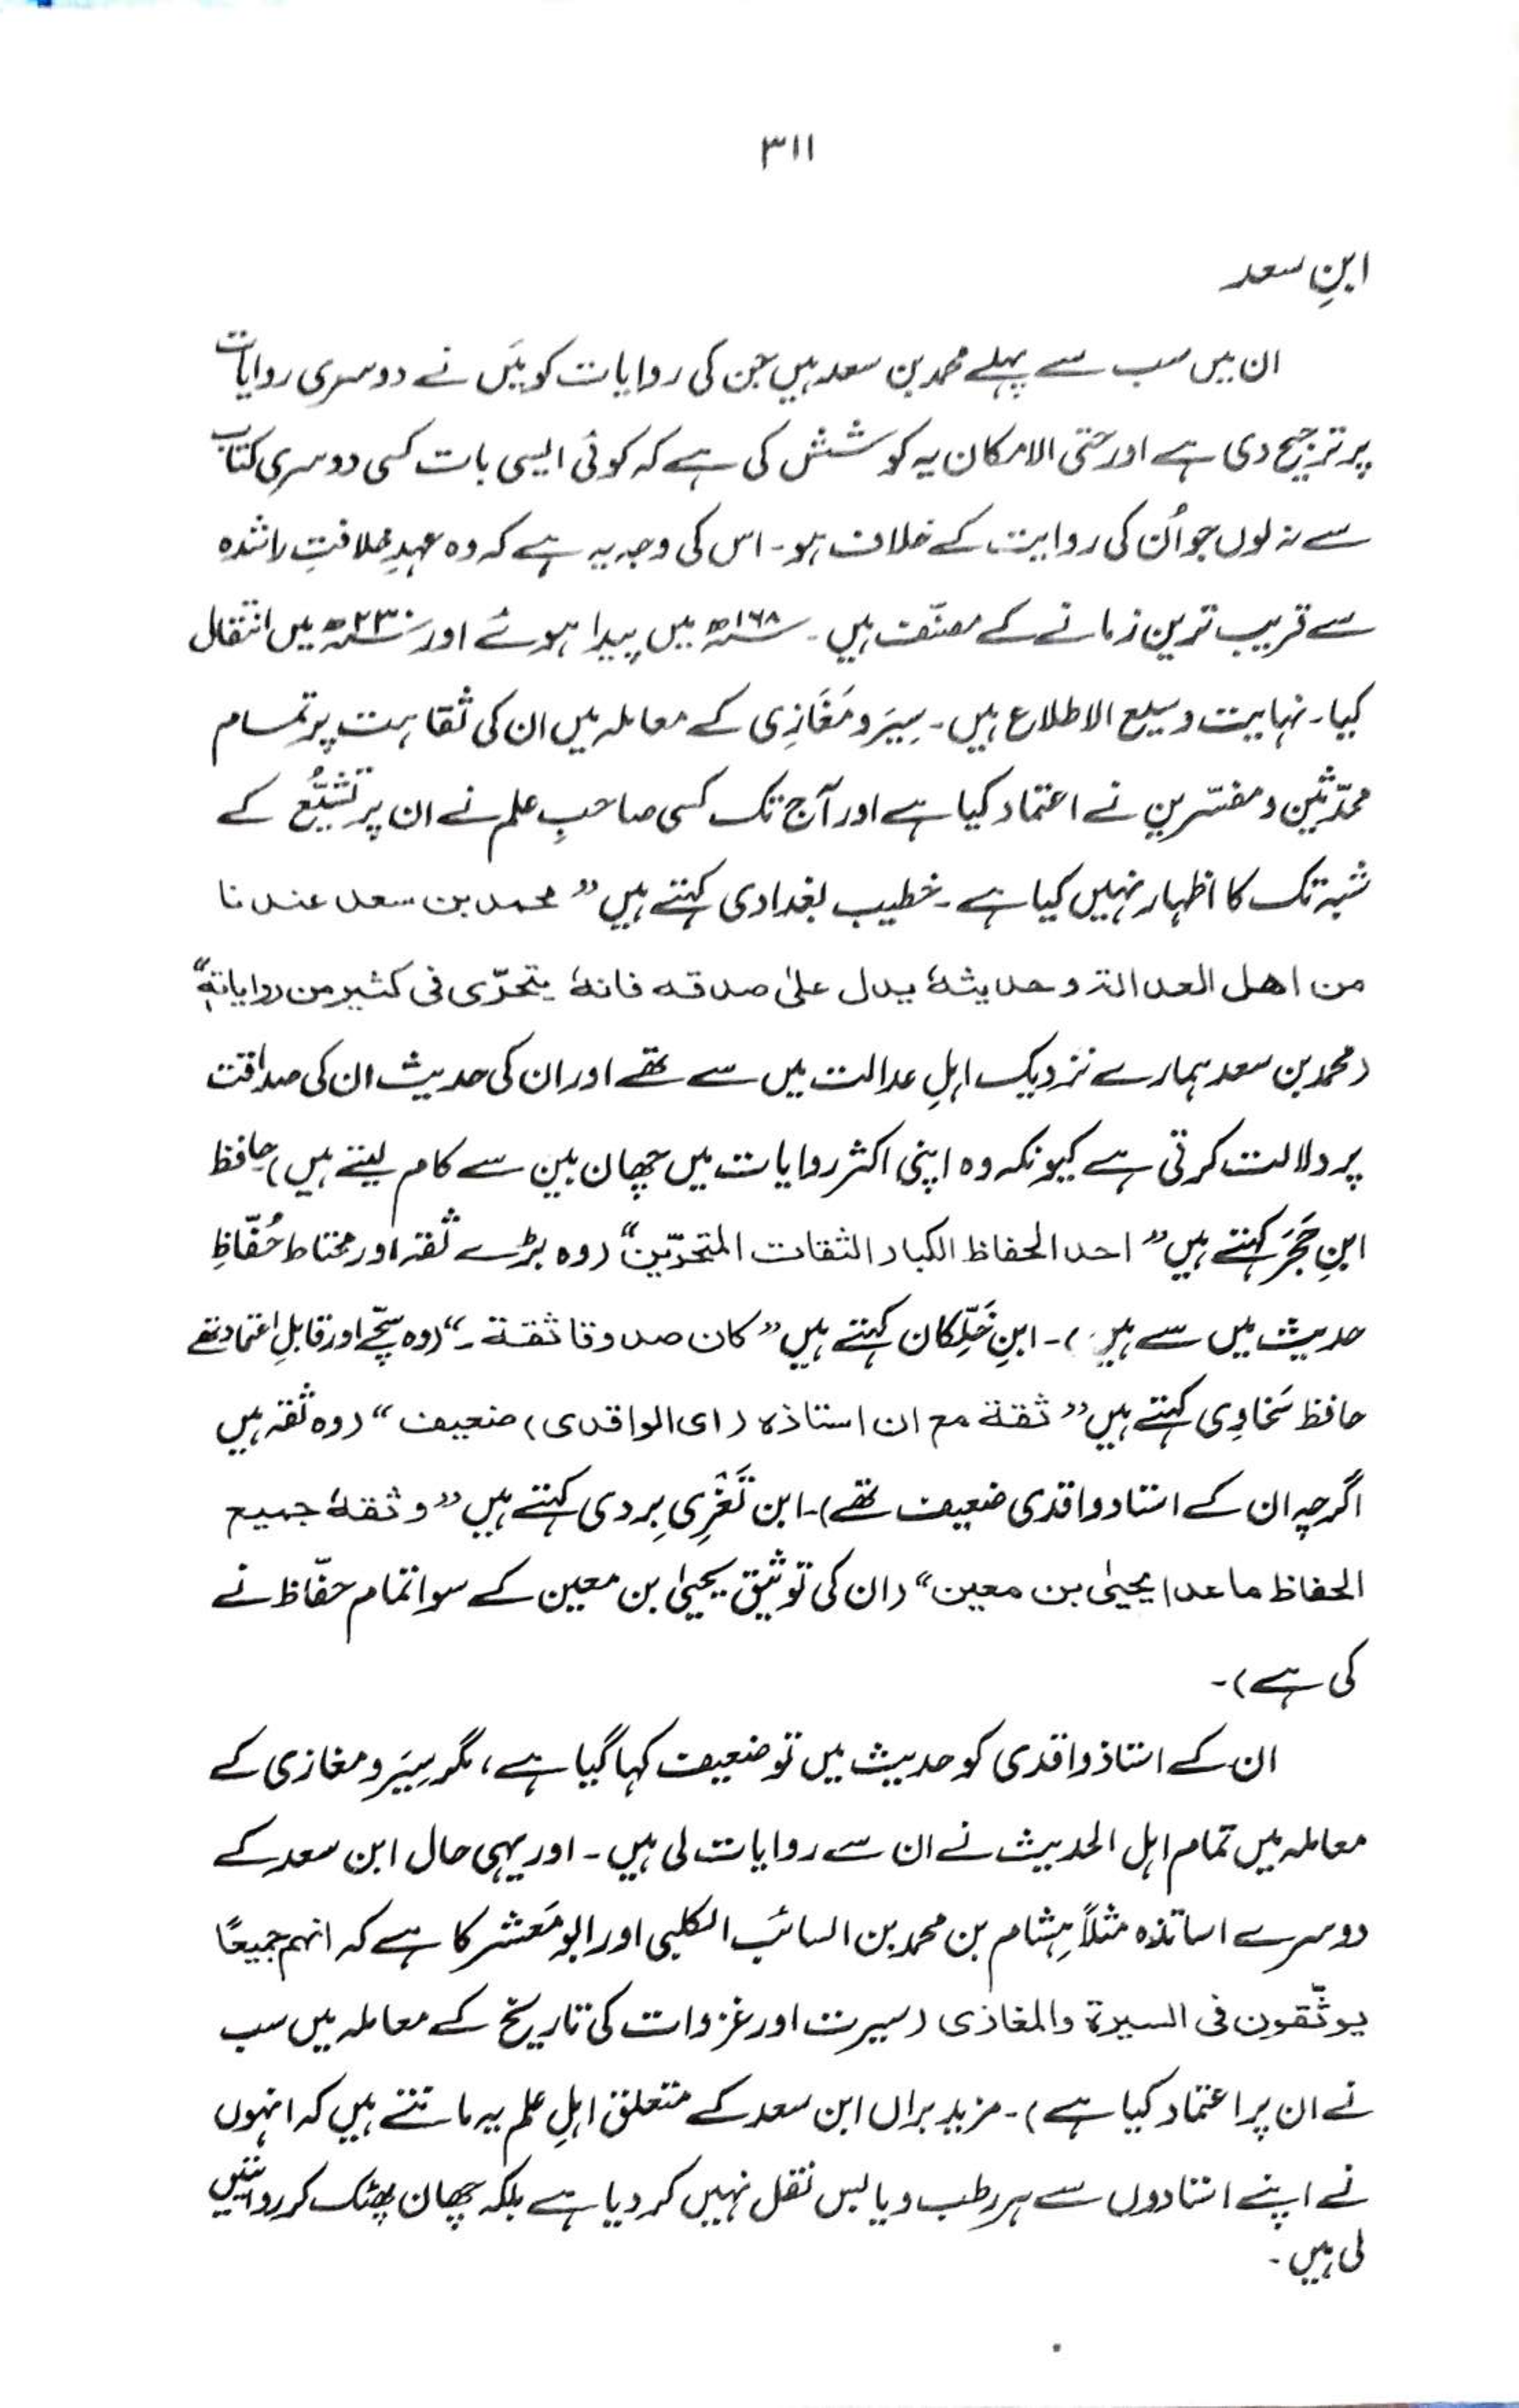 ۳۱۱
ابنِ سعد
ان میں سب سے پہلے محمد بن سعد ہیں جن کی روایات کو مَیں نے دوسری روایات
پر ترجیح دی ہے اور حتی الامکان یہ کوشش کی ہے کہ کوئی ایسی بات کسی دوسری کتاب
سے نہ لوں جو اُن کی روایت کے خلاف ہو۔ اس کی وجہ یہ ہے کہ وہ عہدِ خلافتِ راشدہ
سے قریب ترین زمانے کے مصنّف ہیں۔ ۱۶۸ھ میں پیدا ہوئے اور ۲۳۰ھ میں انتقال
کیا۔ نہایت وسیع الاطلاع ہیں۔ سِیَر و مَغَازِی کے معاملہ میں ان کی ثقاہت پر تمام
محدّثین و مفسّرین نے اعتماد کیا ہے اور آج تک کسی صاحبِ علم نے ان پر تَشَیُّع کے
شبہ تک کا اظہار نہیں کیا ہے۔ خطیب بغدادی کہتے ہیں ”محمد بن سعد عندنا
من اھل العدالۃ وحدیثہٗ یدل علیٰ صدقہ فانہٗ یتحرّی فی کثیر من روایاتہٖ“
(محمد بن سعد ہمارے نزدیک اہلِ عدالت میں سے تھے اور ان کی حدیث ان کی صداقت
پر دلالت کرتی ہے کیونکہ وہ اپنی اکثر روایات میں چھان بین سے کام لیتے ہیں) حافظ
ابنِ حَجَر کہتے ہیں ”احد الحفاظ الکبار الثقات المتحرّین“ (وہ بڑے ثقہ اور محتاط حُفّاظِ
حدیث میں سے ہیں)۔ ابنِ خَلِّکان کہتے ہیں ”کان صدوقا ثقۃ۔“ (وہ سچّے اور قابلِ اعتماد تھے
حافظ سَخاوِی کہتے ہیں ”ثقۃ مع ان استاذہ (ای الواقدی) ضعیف“ (وہ ثقہ ہیں
اگرچہ ان کے استاد واقدی ضعیف تھے)۔ ابن تَغْرِی بِردی کہتے ہیں ”وثقہٗ جمیع
الحفاظ ماعدا یحییٰ بن معین“ (ان کی توثیق یحییٰ بن معین کے سوا تمام حفّاظ نے
کی ہے)۔
ان کے استاذ واقدی کو حدیث میں تو ضعیف کہا گیا ہے، مگر سِیَر و مغازی کے
معاملہ میں تمام اہل الحدیث نے ان سے روایات لی ہیں۔ اور یہی حال ابن سعد کے
دوسرے اساتذہ مثلاً ہِشام بن محمد بن السائب الکلبی اور ابو مَعشر کا ہے کہ انہم جمیعًا
یوثّقون فی السیرۃ والمغازی (سیرت اور غزوات کی تاریخ کے معاملہ میں سب
نے ان پر اعتماد کیا ہے)۔ مزید براں ابن سعد کے متعلق اہلِ علم یہ مانتے ہیں کہ انہوں
نے اپنے استادوں سے ہر رطب و یابس نقل نہیں کر دیا ہے بلکہ چھان پھٹک کر روایتیں
لی ہیں۔